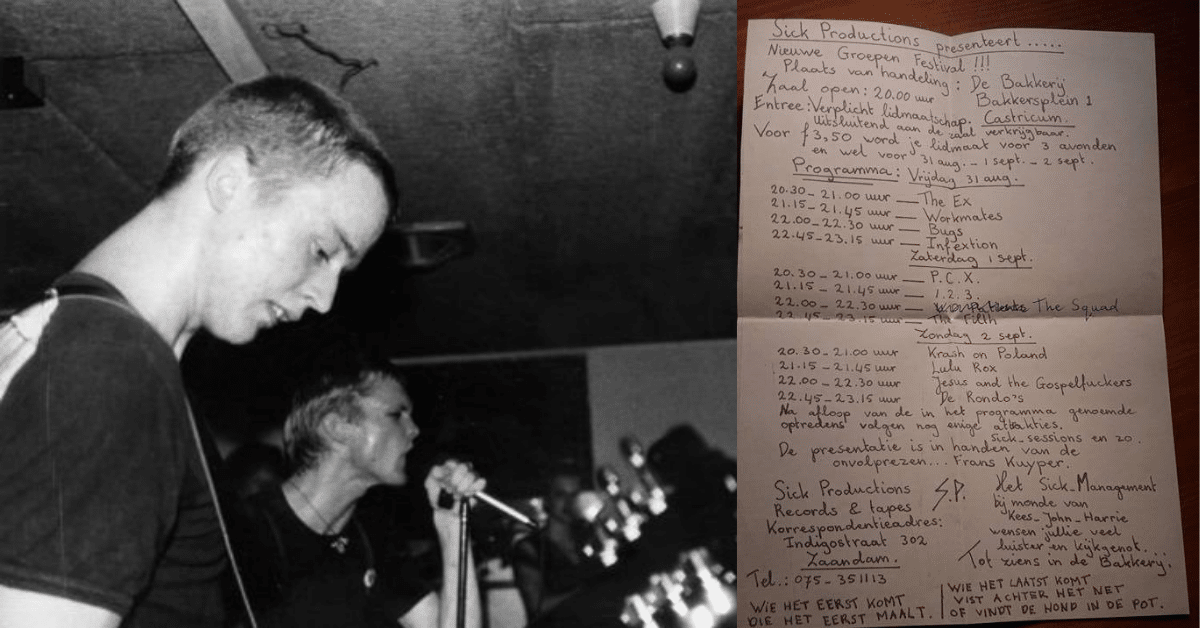 Sick Productions presenteert.....
Nieuwe Groepen Festival !!!
Plaats van handeling : De Bakkerij
Zaal open : 20.00 uur Bakkersplein 1
Entree : Verplicht lidmaatschap. Castricum.
Uitsluitend aan de zaal verkrijgbaar.
Voor f 3,50 word je lidmaat voor 3 avonden
en wel voor 31 aug. - 1 sept. - 2 sept.
Programma : Vrijdag 31 aug.
20.30 - 21.00 uur — The Ex
21.15 - 21.45 uur — Workmates
22.00 - 22.30 uur — Bugs
22.45 - 23.15 uur — Infextion
Zaterdag 1 sept.
20.30 - 21.00 uur — P.C.X.
21.15 - 21.45 uur — 1.2.3.
22.00 - 22.30 uur — The Squad
22.45 - 23.15 uur — The Filth
Zondag 2 sept.
20.30 - 21.00 uur Krash on Poland
21.15 - 21.45 uur Lulu Rox
22.00 - 22.30 uur Jesus and the Gospelfuckers
22.45 - 23.15 uur De Rondo's
Na afloop van de in het programma genoemde
optredens volgen nog enige attrakties.
sick-sessions en zo.
De presentatie is in handen van de
onvolprezen... Frans Kuyper.
Sick Productions S.P.
Records & tapes
Korrespondentieadres:
Indigostraat 302
Zaandam.
Tel.: 075-351113
Het Sick-Management
bij monde van
Kees-John-Harrie
wensen jullie veel
luister en kijkgenot.
Tot ziens in de Bakkerij.
WIE HET EERST KOMT
DIE HET EERST MAALT.
WIE HET LAATST KOMT
VIST ACHTER HET NET
OF VINDT DE HOND IN DE POT.